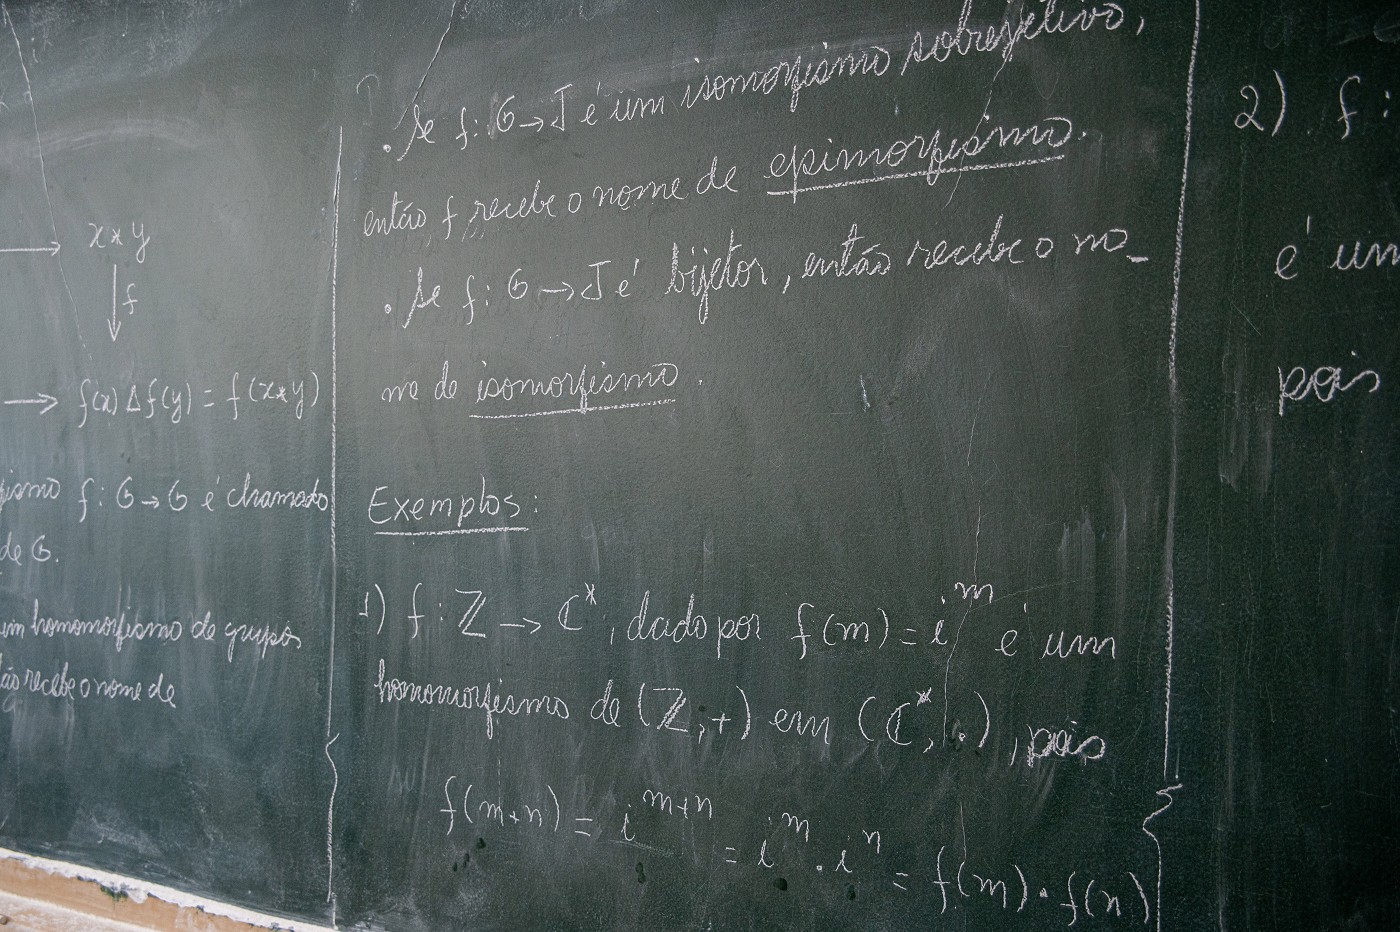 x * y
f
f(x) Δ f(y) = f(x * y)
f: G → G é chamado
de G.
um homomorfismo de grupos
recebe o nome de
. Se f: G → J é um isomorfismo sobrejetivo,
então f recebe o nome de epimorfismo.
. Se f: G → J é bijetor, então recebe o no_
me de isomorfismo.
Exemplos:
1) f: ℤ → ℂ*, dado por f(m) = i^m é um
homomorfismo de (ℤ, +) em (ℂ*, ·), pois
f(m+n) = i^{m+n} = i^m · i^n = f(m) · f(n)
2) f:
é um
pois